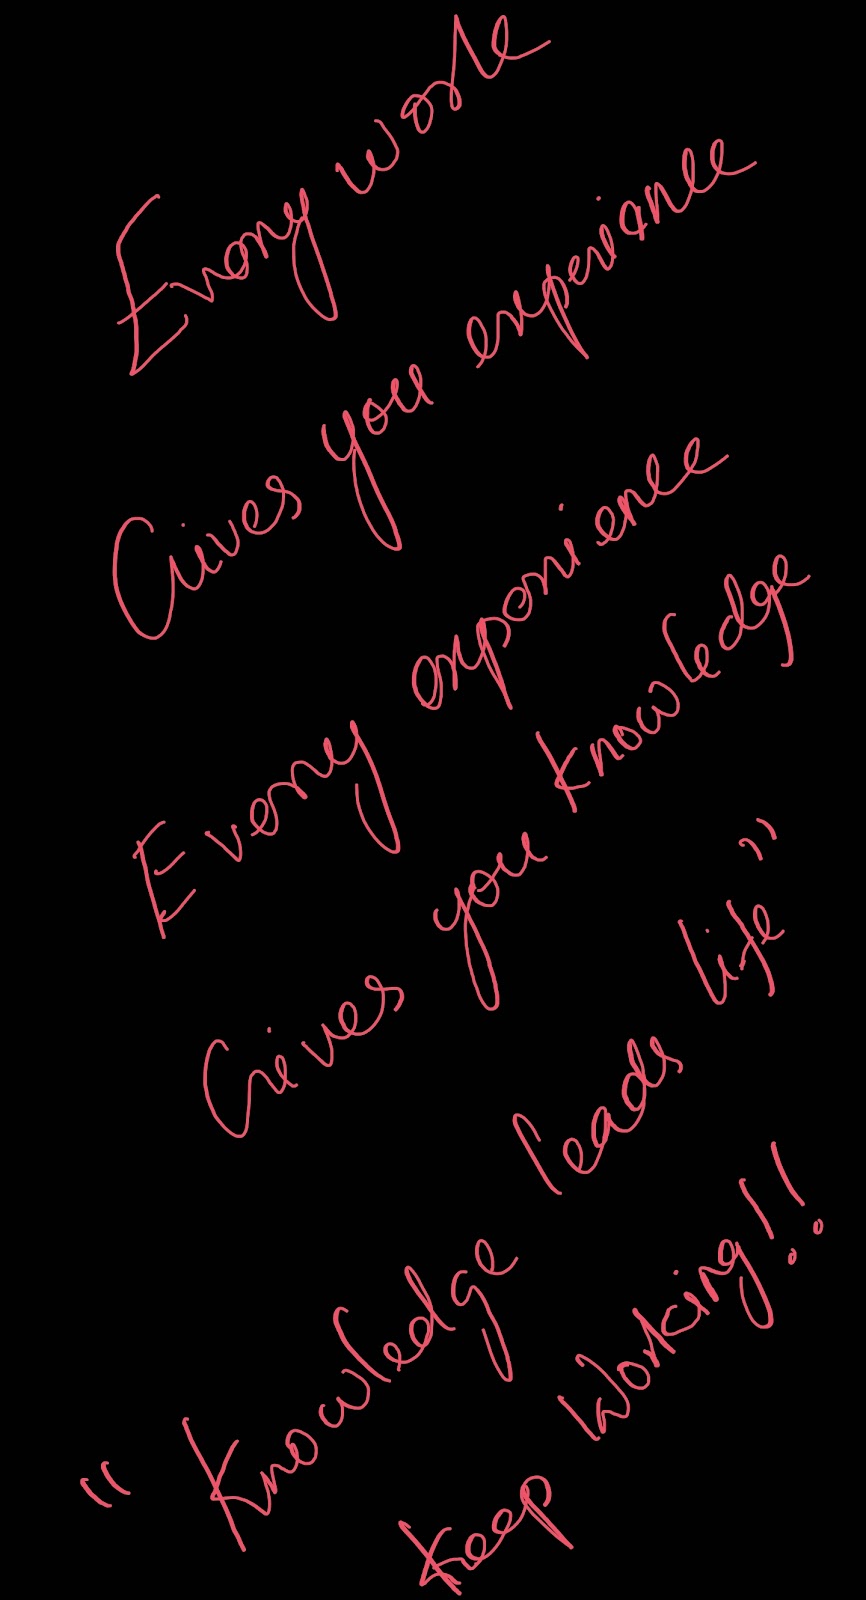 Every work
Gives you experiance
Every experience
Gives you knowledge
"Knowledge leads life"
Keep Working!!